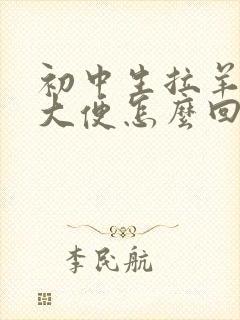 初中生拉羊
大便怎麼回
李民航